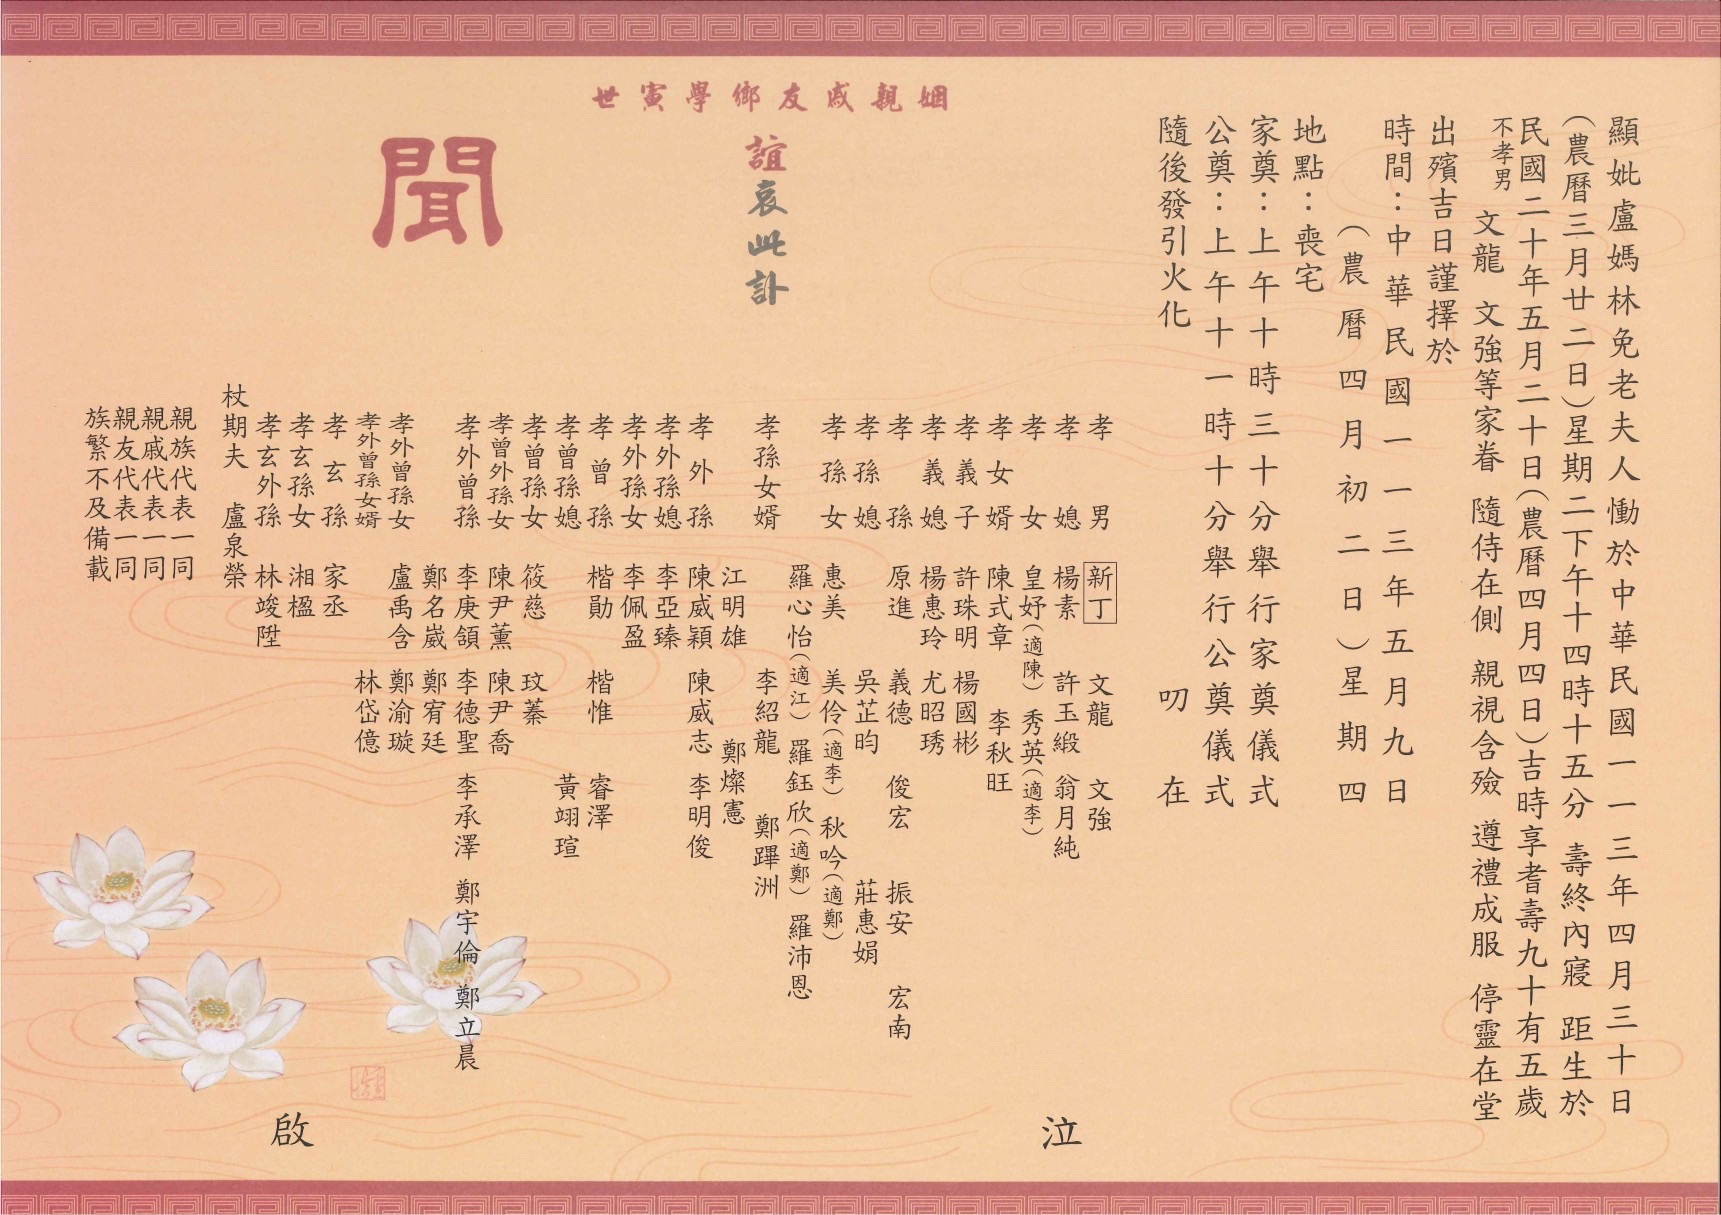 顯妣盧媽林免老夫人慟於中華民國一一三年四月三十日
(農曆三月廿二日)星期二下午十四時十五分 壽終內寢 距生於
民國二十年五月二十日(農曆四月四日)吉時享耆壽九十有五歲
不孝男 文龍 文強等家眷 隨侍在側 親視含殮 遵禮成服 停靈在堂
出殯吉日謹擇於
時間:中華民國一一三年五月九日
(農曆四月初二日)星期四
地點:喪宅
家奠:上午十時三十分舉行家奠儀式
公奠:上午十一時十分舉行公奠儀式
隨後發引火化 叨在
姻親戚友鄉學寅世
誼哀此訃
聞
孝男 新丁 文龍 文強
孝媳 楊素 許玉緞 翁月純
孝女 皇妤(適陳) 秀英(適李)
孝女婿 陳式章 李秋旺
孝義子 許珠明 楊國彬
孝義媳 楊惠玲 尤昭琇
孝孫 原進 義德 俊宏 振安 宏南
孝孫媳 吳芷昀 莊惠娟
孝孫女 惠美 美伶(適李) 秋吟(適鄭)
羅心怡(適江) 羅鈺欣(適鄭) 羅沛恩
孝孫女婿 李紹龍 鄭蹕洲
江明雄 鄭燦憲
孝外孫 陳威穎 陳威志 李明俊
孝外孫媳 李亞臻
孝外孫女 李佩盈
孝曾孫 楷勛 楷惟 睿澤
孝曾孫媳 黃翊瑄
孝曾孫女 筱慈 玟蓁
孝曾外孫女 陳尹薰 陳尹喬
孝外曾孫 李庚頷 李德聖 李承澤 鄭宇倫 鄭立晨
鄭名崴 鄭宥廷
孝外曾孫女 盧禹含 鄭渝璇
孝外曾孫女婿 林岱億
孝玄孫 家丞
孝玄孫女 湘楹
孝玄外孫 林竣陞
杖期夫 盧泉榮
親族代表一同
親戚代表一同
親友代表一同
族繁不及備載
泣
啟